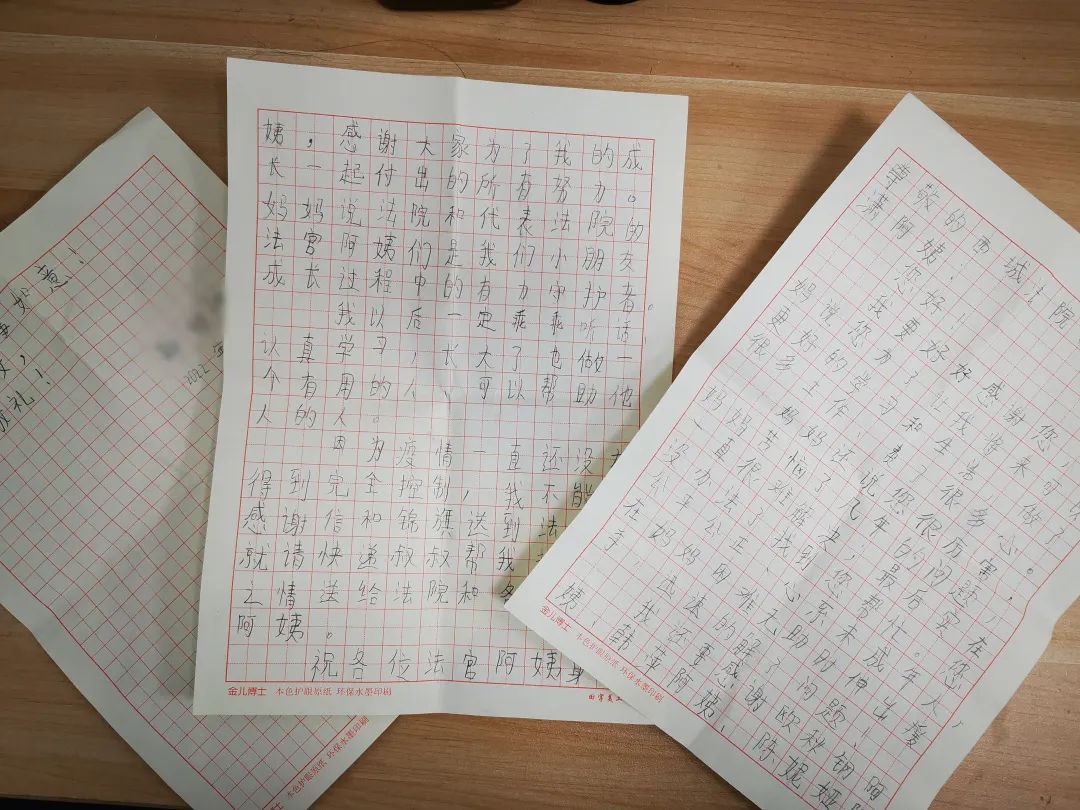 尊敬的西城法院
潇阿姨:
您好!
我要好好感谢您,
妈说您为了让我将来可以
更好的学习和生活做了
很多工作,费了很多心。
妈妈还说您很厉害,
妈妈苦恼了几年的问题
一直很难解决,最后实在
没办法了找到您帮忙。您
公平公正、心系未成年人,
在妈妈的难无助时伸出援
手,迅速的解了问题!
我还要感谢欧秋钢阿
姨、韩萍阿姨、陈妮娅阿
金儿博士 本色护眼原纸 环保水墨印刷
姨,感谢大家为了我的成
长一起付出的所有努力。
妈妈说法院和代表法院的
法官阿姨们是我们小朋友
成长过程中的有力守护者。
我以后一定乖乖听话
认真学习,长大了也做一
个有用的人、可以帮助他
人的人。
因为疫情一直还没有
得到完全控制,我不能
感谢信和锦旗送到法
就请快递叔叔帮我
之情送给法院和各
阿姨。
祝各位法官阿姨身
金儿博士 本色护眼原纸 环保水墨印刷
如意!
礼!
2022年
本色护眼原纸 环保水墨印刷